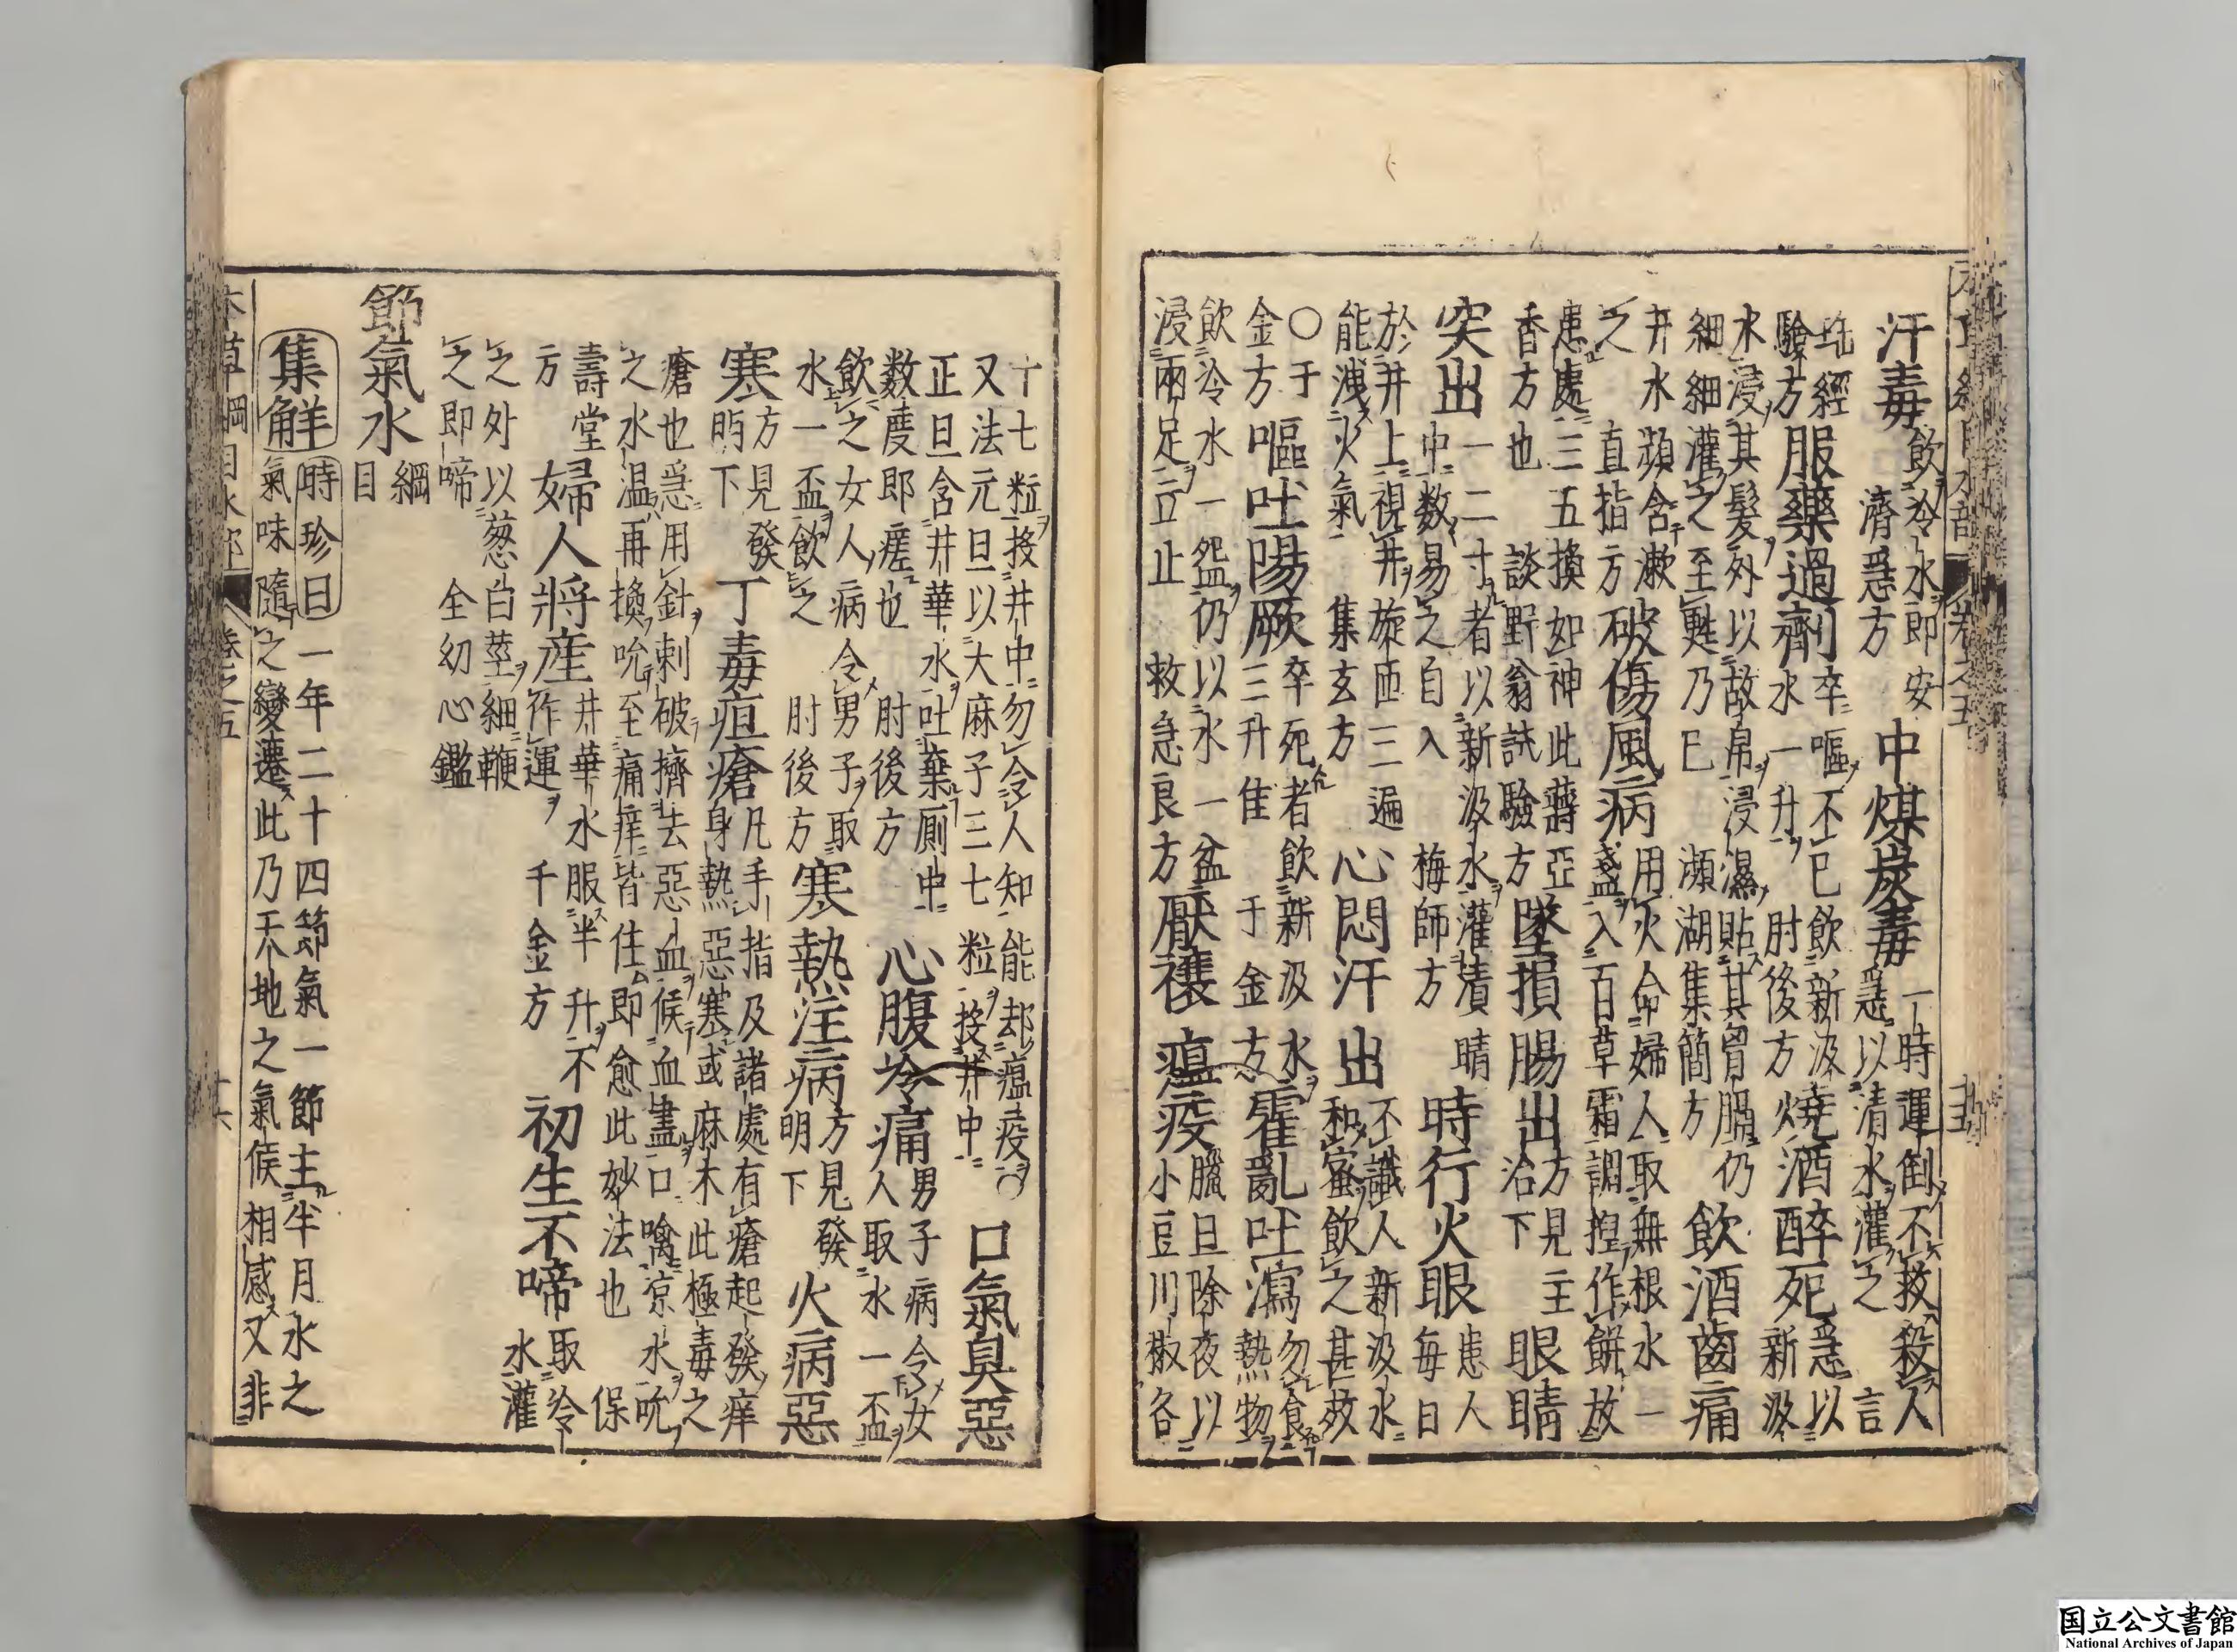 汗毒
飲冷水即安
濟急方
中煤炭毒
一時運倒不救殺人
急以清水灌之 言
經
驗方
服藥過劑
卒嘔不已飲新汲
水一升 肘後方
燒酒醉死
急以
新汲
水浸其髮外以故帛浸濕貼其胷膈仍
細細灌之至甦乃已 瀕湖集簡方
飲酒齒痛
井水頻含漱
之 直指方
破傷風病
用火命婦人取無根水一
盞入百草霜調捏作餅放
患處三五換如神此蔣亞
香方也 談野翁試驗方
墜損腸出
方見主
治下
眼睛
突出
一二寸者以新汲水灌漬睛
中数易之自入 梅師方
時行火眼
患人
每日
於井上視井旋匝三遍
能洩火氣 集玄方
心悶汗出
不識人新汲水
和蜜飲之甚效
〇于
金方
嘔吐陽厥
卒死者飲新汲水
三升佳 于金方
霍亂吐瀉
勿食
熱物
飲冷水一盌仍以水一盆
浸兩足立止 救急良方
厭禳瘟疫
臘旦除夜以
小豆川椒各
十七粒投井中勿令人知能却瘟疫〇
又法元旦以大麻子三七粒投井中
口氣臭惡
正旦含井華水吐棄厠中
数度即瘥也 肘後方
心腹冷痛
男子病令女
人取水一盃
飲之女人病令男子取
水一盃飲之 肘後方
寒熱注病
方見發
明下
火病惡
寒
方見發
明下
丁毒疽瘡
凡手指及諸處有瘡起發痒
身熱惡寒或麻木此極毒之
瘡也急用針刺破擠去惡血候血盡口噙凉水吮
之水温再換吮至痛痒皆住即愈此妙法也 保
壽堂
方
婦人將産
井華水服半升不
作運 千金方
初生不啼
取冷
水灌
之外以葱白莖細鞭
之即啼 全幼心鑑
節氣水 綱目
集解
時珍曰一年二十四節氣一節主半月水之
氣味隨之變遷此乃天地之氣候相感又非